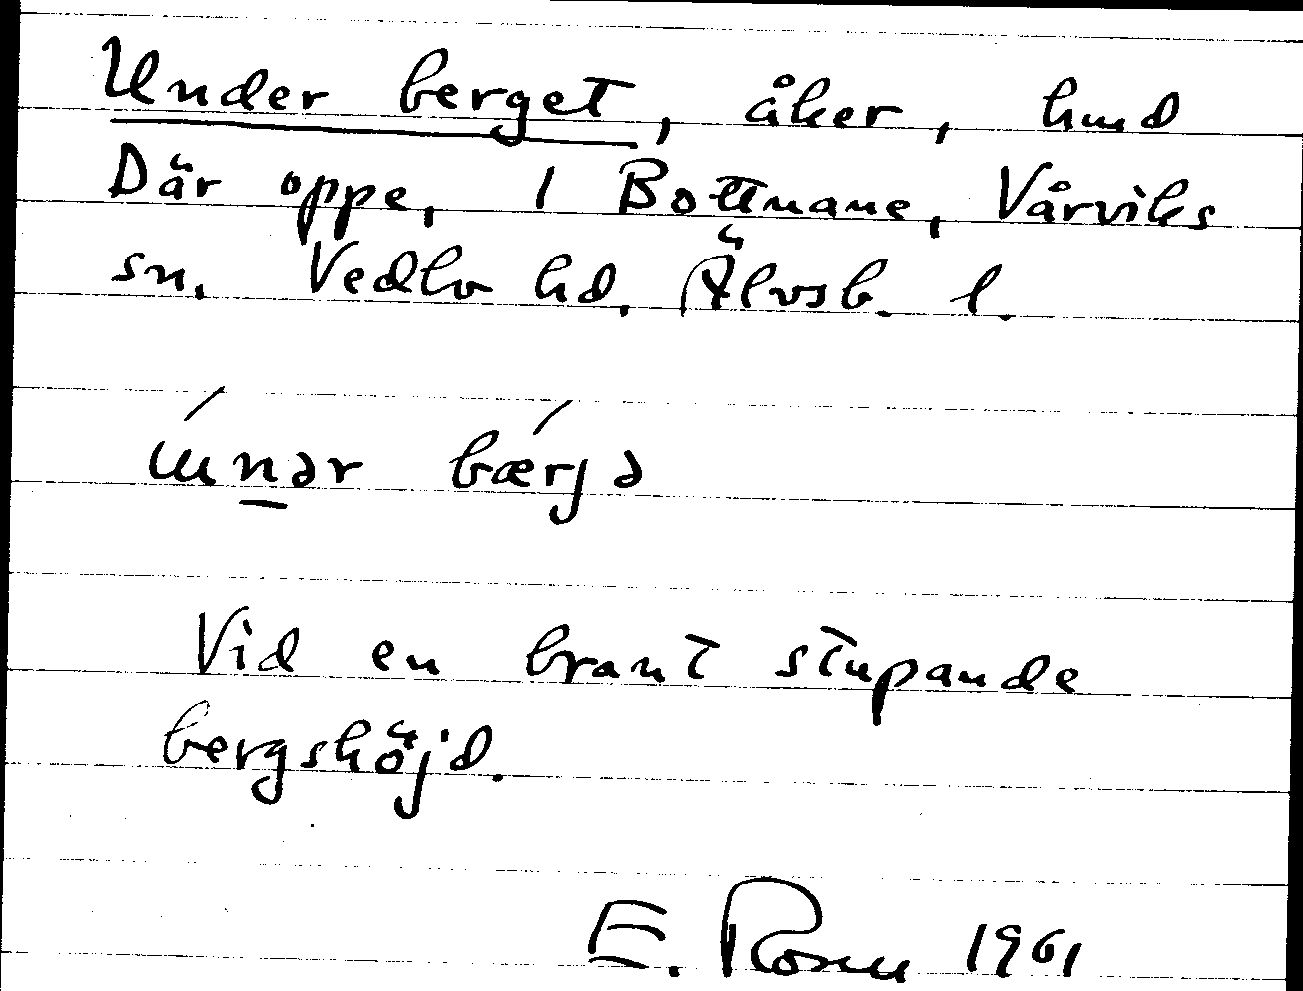 Under berget, åker, hmd
Där oppe, 1 Bottnane, Vårviks
sn. Vedbo hd. Älvsb. l.
únər bǽrjə
Vid en brant stupande
bergshöjd.
E. Rosen 1961